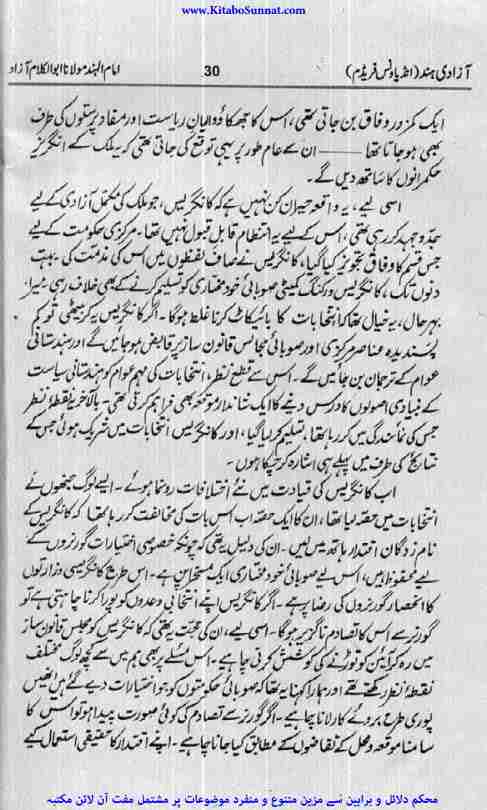 www.KitaboSunnat.com
آزادی ہند (انڈیا ونس فریڈم) 30 امام الہند مولانا ابوالکلام آزاد
ایک کمزور وفاق بن جاتی تھی، اس کا جھکاؤ والیانِ ریاست اور مفاد پرستوں کی طرف
بھی ہو جاتا تھا —— ان سے عام طور پر یہی توقع کی جاتی تھی کہ یہ ملک کے انگریز
حکمرانوں کا ساتھ دیں گے۔
اسی لیے، یہ واقعہ حیران کن نہیں ہے کہ کانگریس، جو ملک کی مکمل آزادی کے لیے
جدوجہد کر رہی تھی، اس کے لیے یہ انتظام قابل قبول نہیں تھا۔ مرکزی حکومت کے لیے
جس قسم کا وفاق تجویز کیا گیا، کانگریس نے صاف لفظوں میں اس کی مذمت کی۔ بہت
دنوں تک، کانگریس ورکنگ کمیٹی صوبائی خود مختاری کو تسلیم کرنے کے بھی خلاف رہی۔ میرا
بہر حال، یہ خیال تھا کہ انتخابات کا بائیکاٹ کرنا غلط ہوگا۔ اگر کانگریس یہ کر بیٹھی تو کم
پسندیدہ عناصر مرکزی اور صوبائی مجالس قانون ساز پر قابض ہو جائیں گے اور ہندستانی
عوام کے ترجمان بن جائیں گے۔ اس سے قطع نظر، انتخابات کی مہم عوام کو ہندستانی سیاست
کے بنیادی اصولوں کا درس دینے کا ایک شاندار موقعہ بھی فراہم کرتی تھی۔ بالآخر یہ نقطۂ نظر
جس کی نمائندگی میں کر رہا تھا، تسلیم کر لیا گیا، اور کانگریس انتخابات میں شریک ہوئی جس کے
نتائج کی طرف میں پہلے ہی اشارہ کر چکا ہوں۔
اب کانگریس کی قیادت میں نئے اختلافات رونما ہوئے۔ ایسے لوگ جنھوں نے
انتخابات میں حصہ لیا تھا، ان کا ایک حصہ اب اس بات کی مخالفت کر رہا تھا کہ کانگریس کے
نام زدگان اقتدار ہاتھ میں لیں۔ ان کی دلیل یہ تھی کہ چونکہ خصوصی اختیارات گورنروں کے
لیے محفوظ ہیں، اس لیے صوبائی خود مختاری ایک مسخراپن ہے۔ اس طرح کانگریسی وزارتوں
کا انحصار گورنروں کی رضا پر ہے۔ اگر کانگریس اپنے انتخابی وعدوں کو پورا کرنا چاہتی ہے تو
گورنر سے اس کا تصادم ناگزیر ہوگا۔ اسی لیے، ان کی حجت یہ تھی کہ کانگریس کو مجلس قانون ساز
میں رہ کر آئین کو توڑنے کی کوشش کرنی چاہیے۔ اس مسئلے پر بھی ہم میں سے کچھ لوگ مختلف
نقطۂ نظر رکھتے تھے اور ہمارا کہنا یہ تھا کہ صوبائی حکومتوں کو جو اختیارات دیے گئے ہیں انھیں
پوری طرح بروئے کار لانا چاہیے۔ اگر گورنر سے تصادم کی کوئی صورت پیدا ہو تو اس کا
سامنا موقعہ و محل کے تقاضوں کے مطابق کیا جانا چاہیے۔ اپنے اقتدار کا حقیقی استعمال کیے
محکم دلائل و براہین سے مزین متنوع و منفرد موضوعات پر مشتمل مفت آن لائن مکتبہ